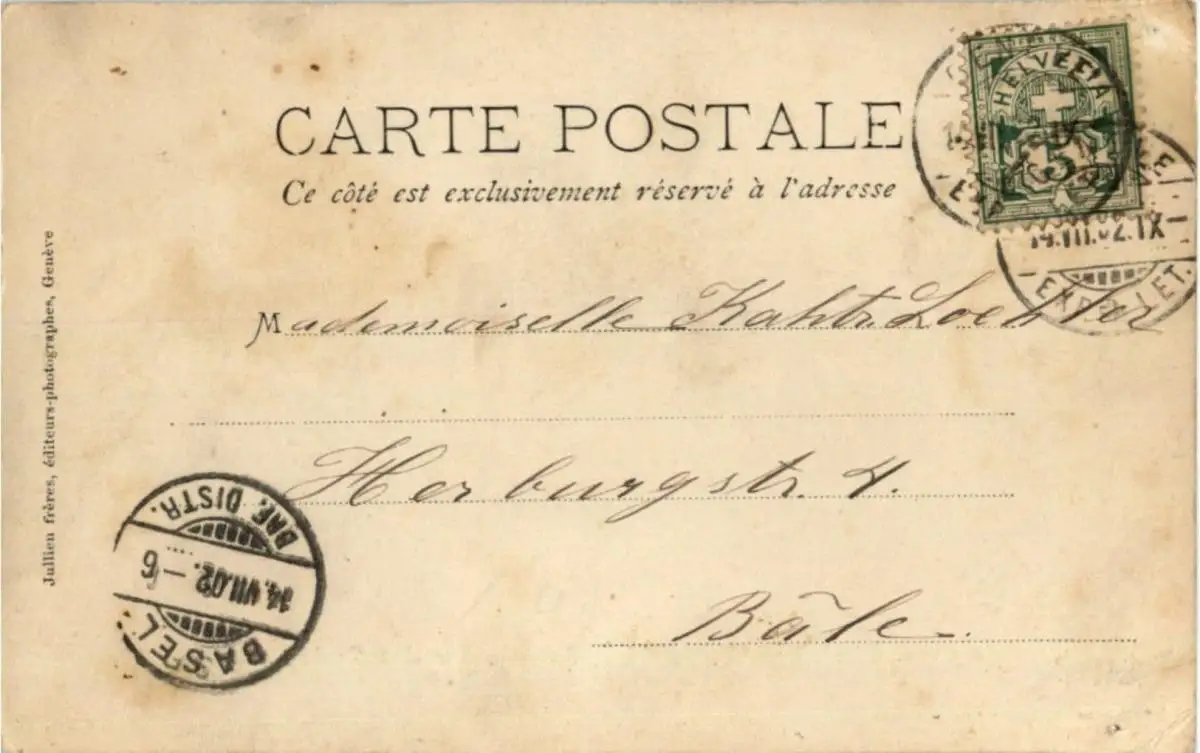 CARTE POSTALE
Ce côté est exclusivement réservé à l'adresse
HELVETIA
5
14.VII.02.IX
EXP. LET.
Mademoiselle
Herburgstr. 4.
Bâle.
Jullien frères, éditeurs-photographes, Genève
BRF. DISTR.
14.VII.02.–6
BASEL